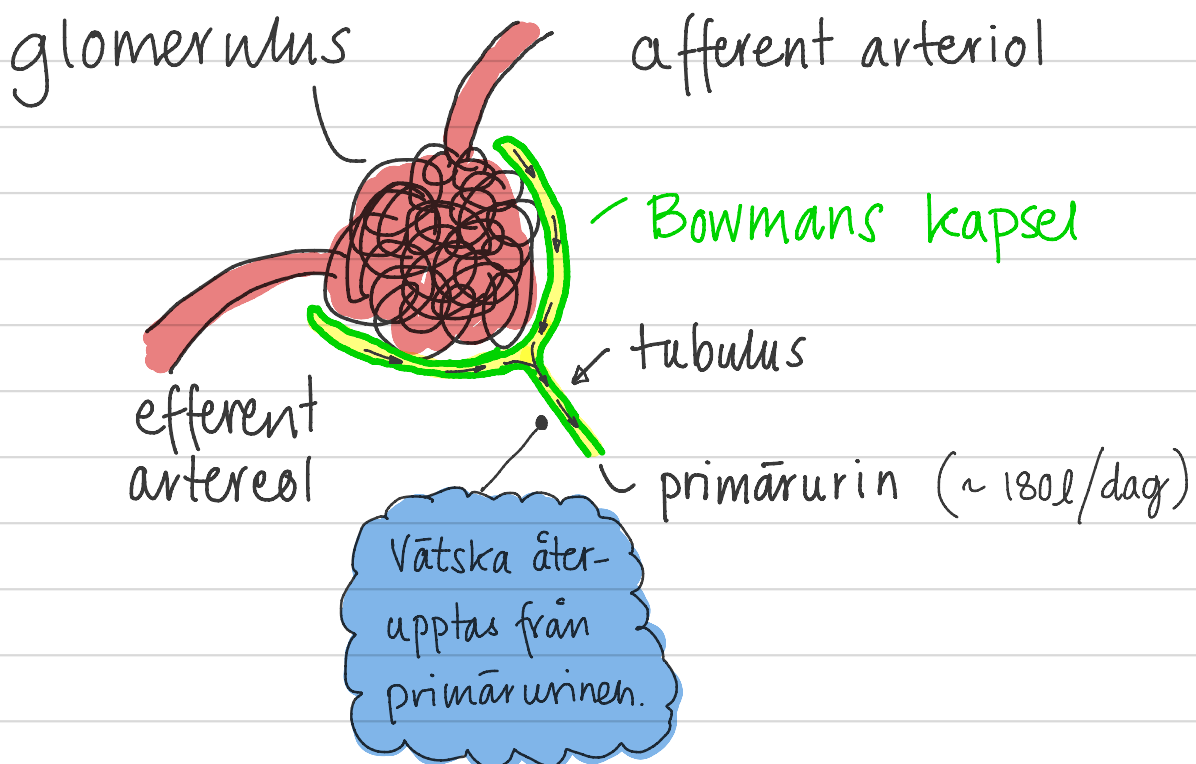 glomerulus
afferent arteriol
Bowmans kapsel
tubulus
efferent
artereol
primärurin (~ 180l/dag)
Vätska åter-
upptas från
primärurinen.